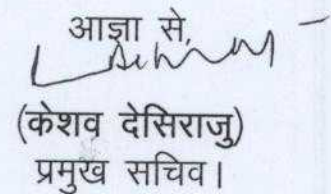 आज्ञा से,
(केशव देसिराजु)
प्रमुख सचिव।